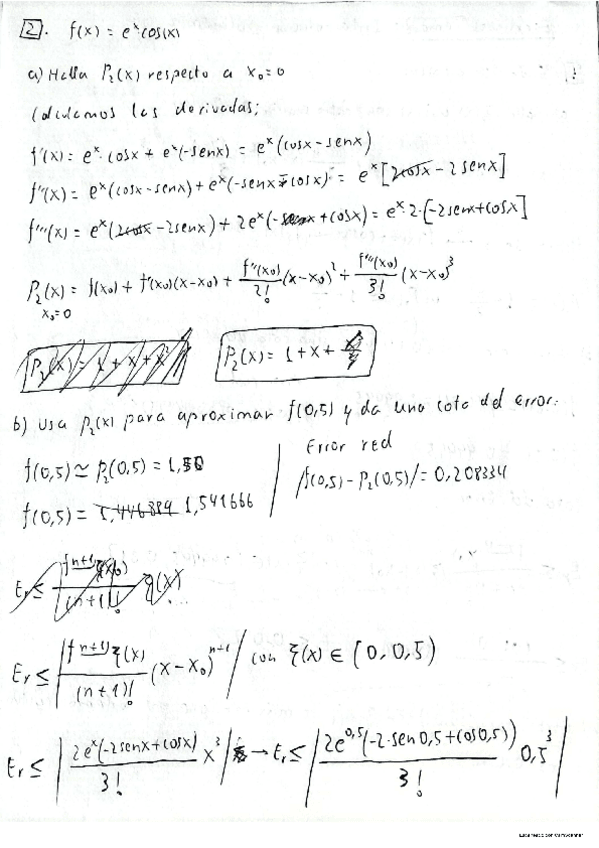 2. f(x) = e^x cos(x)
a) Halla P₂(x) respecto a x₀=0
Calculamos las derivadas;
f'(x) = e^x · cosx + e^x(-senx) = e^x(cosx - senx)
f''(x) = e^x(cosx - senx) + e^x(-senx - cosx) = e^x[2cosx - 2senx]
f'''(x) = e^x(2cosx - 2senx) + 2e^x(-senx + cosx) = e^x·2·[-2senx + cosx]
P₂(x) = f(x₀) + f'(x₀)(x-x₀) + f''(x₀)/2! (x-x₀)² + f'''(x₀)/3! (x-x₀)³
x₀=0
P₂(x) = 1 + x + x² P₂(x) = 1 + x +
b) Usa P₂(x) para aproximar f(0,5) y da una cota del error.
f(0,5) ≃ P₂(0,5) = 1,50
Error red
f(0,5) = 1,446889 1,541666
/f(0,5) - P₂(0,5)/ = 0,208334
Er ≤ | f^(n+1)(x₀)/(n+1)! ξ(x)
Er ≤ | f^(n+1) ξ(x)/(n+1)! (x-x₀)^(n+1) | con ξ(x) ∈ [0, 0,5)
Er ≤ | 2e^x(-2senx+cosx)/3! x³ | → Er ≤ | 2e^0,5(-2·sen0,5+cos0,5))/3! 0,5³ |